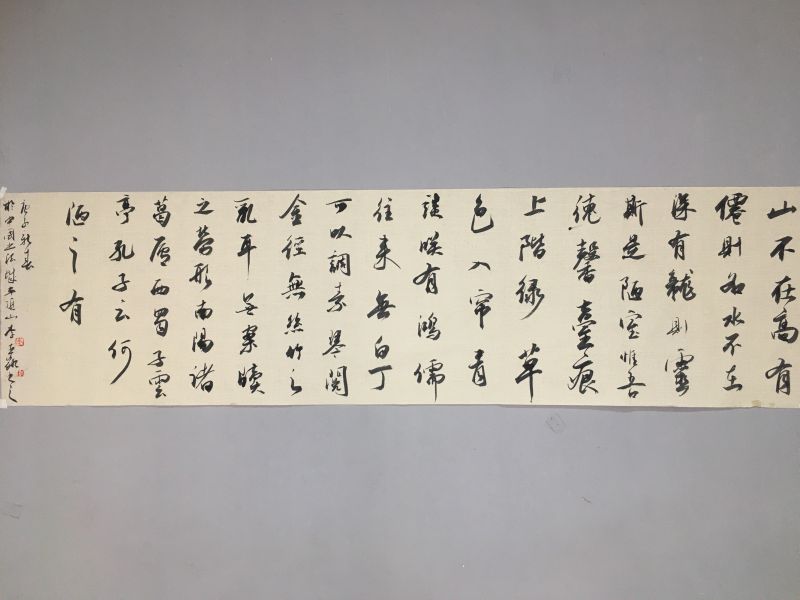 山不在高有
僊則名水不在
深有龍則靈
斯是陋室惟吾
德馨臺痕
上階緑草
色入帘青
談咲有鴻儒
往来無白丁
可以調素琴閱
金徑無絲竹之
乱耳无案牘
之勞形南陽諸
葛廬西蜀子雲
亭孔子云何
陋之有
庚子新春
於中国书法城平頂山李